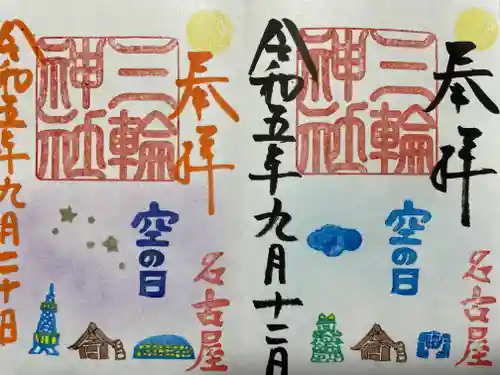 奉拝
三輪
神社
空の日
名古屋
令和五年九月二十日
奉拝
三輪
神社
空の日
名古屋
令和五年九月十二日